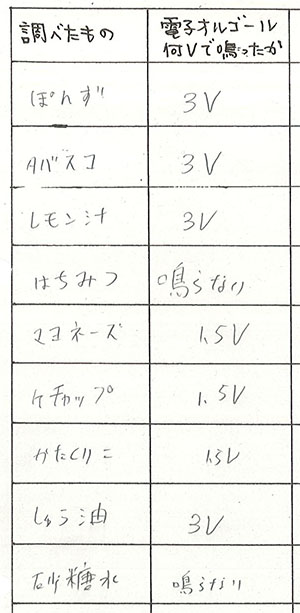 調べたもの
電子オルゴール
何Vで鳴ったか
ぽんず
3V
タバスコ
3V
レモン汁
3V
はちみつ
鳴らない
マヨネーズ
1.5V
ケチャップ
1.5V
かたくりこ
1.5V
しょう油
3V
砂糖水
鳴らない